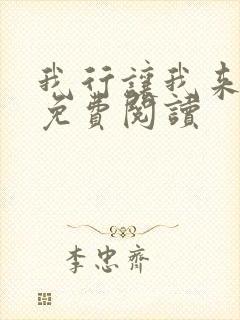 我行讓我来
免費閱讀
李忠齊